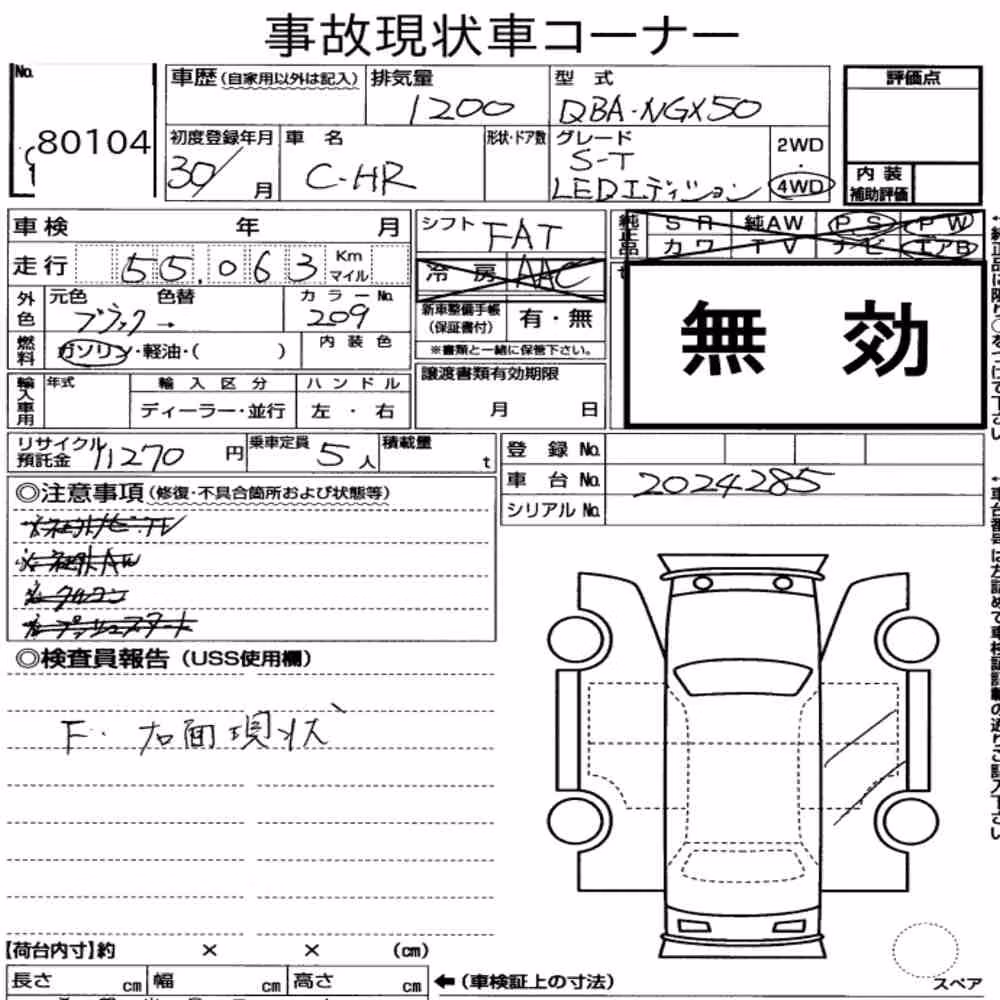 事故現状車コーナー
No. 80104
車歴(自家用以外は記入)
排気量 1200
型式 DBA-NGX50
評価点
初度登録年月 30/ 月
車名 C-HR
形状・ドア数
グレード S-T
LEDエディション
2WD・4WD
内装補助評価
車検 年 月
シフト FAT
純正品 SR 純AW PS PW
カワ TV ナビ エアB
走行 55,063 Km マイル
冷房 AAC
外色 元色 ブラック→ 色替
カラーNo. 209
新車整備手帳(保証書付) 有・無
※書類と一緒に保管下さい。
無効
燃料 ガソリン・軽油・( )
内装色
輸入車用 年式 輸入区分 ハンドル
ディーラー・並行 左・右
譲渡書類有効期限
月 日
リサイクル預託金 11270 円
乗車定員 5 人
積載量 t
登録No.
車台No. 2024285
シリアルNo.
◎注意事項(修復・不具合箇所および状態等)
◎検査員報告(USS使用欄)
F・右面現状
【荷台内寸】約 × × (cm)
長さ cm 幅 cm 高さ cm
←(車検証上の寸法)
スペア